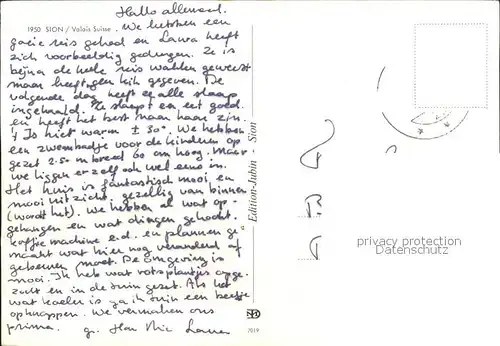 Hallo allemaal.
1950 SION / Valais Suisse
We hebben een
goeie reis gehad en Laura heeft
zich voorbeeldig gedragen. Ze is
bijna de hele reis wakker geweest
maar heeft geen kik gegeven. De
volgende dag heeft ze alle slaap
ingehaald. Ze slaapt en eet goed.
en heeft het best naar haar zin.
't Is hier warm ± 30°. We hebben
een zwembadje voor de kinderen op
gezet 2.50 m breed 60 cm hoog. Maar
we liggen er zelf ook wel eens in.
Het huis is fantastisch mooi en
mooi uitzicht. gezellig van binnen
(wordt het). We hebben al wat op-
gehangen en wat dingen gekocht.
koffie machine e.d. en plannen ge
maakt wat hier nog veranderd of
gebeuren moet. De omgeving is
mooi. Ik heb wat rotsplantjes opge-
zocht en in de tuin gezet. Als het
wat koeler is ga ik tuin een beetje
opknappen. We vermaken ons
prima. gr. Han Laura
Edition-Jubin Sion
7019
privacy protection
Datenschutz